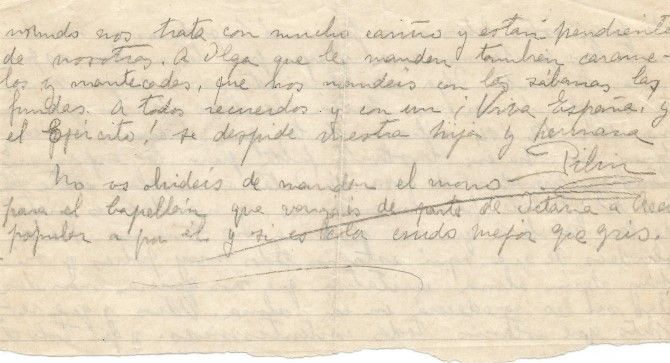 nos trata con mucho cariño y están pendiente
de nosotras. A Olga que le manden también carame-
los y mantecadas, que nos mandéis con las sábanas las
fundas. A todos recuerdos y con un ¡Viva España, y
el Ejército! se despide vuestra hija y hermana
No os olvidéis de mandar el mono
para el Capellán, que vengáis de parte de a
popular a por él y si es tela crudo mejor que gris.